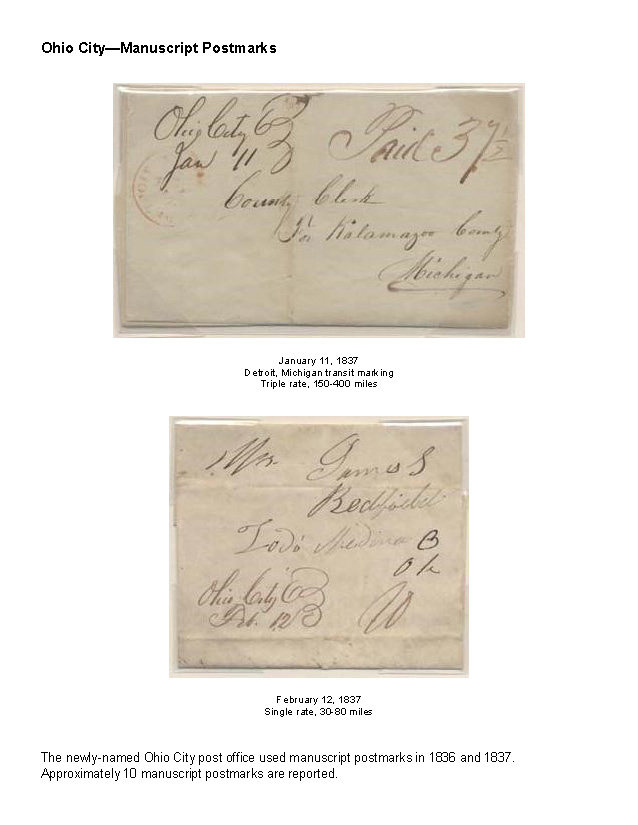 Ohio City—Manuscript Postmarks
Ohio City
Jan 11
Paid 37 1/2
County Clerk
For Kalamazoo County
Michigan
January 11, 1837
Detroit, Michigan transit marking
Triple rate, 150-400 miles
Mr. James
Medina
Ohio City
Feb. 12
February 12, 1837
Single rate, 30-80 miles
The newly-named Ohio City post office used manuscript postmarks in 1836 and 1837.
Approximately 10 manuscript postmarks are reported.